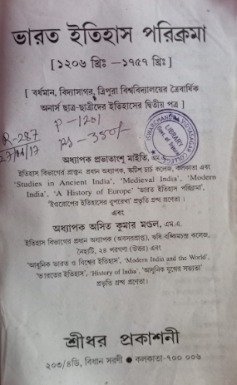 ভারত ইতিহাস পরিক্রমা
[ ১২০৬ খ্রিঃ —১৭৫৭ খ্রিঃ ]
[ বর্ধমান, বিদ্যাসাগর, ত্রিপুরা বিশ্ববিদ্যালয়ের ত্রৈবার্ষিক
অনার্স ছাত্র-ছাত্রীদের ইতিহাসের দ্বিতীয় পত্র ]
R-287
P-1201
27/09/17
Rs-350/-
LIBRARY
অধ্যাপক প্রভাতাংশু মাইতি,
ইতিহাস বিভাগের প্রাক্তন প্রধান অধ্যাপক, কলেজ, কলকাতা এবং
'Studies in Ancient India', 'Medieval India', 'Modern
India', 'A History of Europe' 'ভারত ইতিহাস পরিক্রমা',
'ইওরোপের ইতিহাসের রূপরেখা' প্রভৃতি গ্রন্থ প্রণেতা।
এবং
অধ্যাপক অসিত কুমার মণ্ডল, এম.এ.
ইতিহাস বিভাগের প্রধান অধ্যাপক (অবসরপ্রাপ্ত), ঋষি বঙ্কিমচন্দ্র কলেজ,
নৈহাটি, ২৪ পরগণা (উত্তর) এবং
'আধুনিক ভারত ও বিশ্বের ইতিহাস', 'Modern India and the World',
'ভারতের ইতিহাস', 'History of India', 'আধুনিক যুগের সভ্যতা'
প্রভৃতি গ্রন্থ প্রণেতা।
শ্রীধর প্রকাশনী
২০৩/৪ডি, বিধান সরণী ● কলকাতা-৭০০ ০০৬